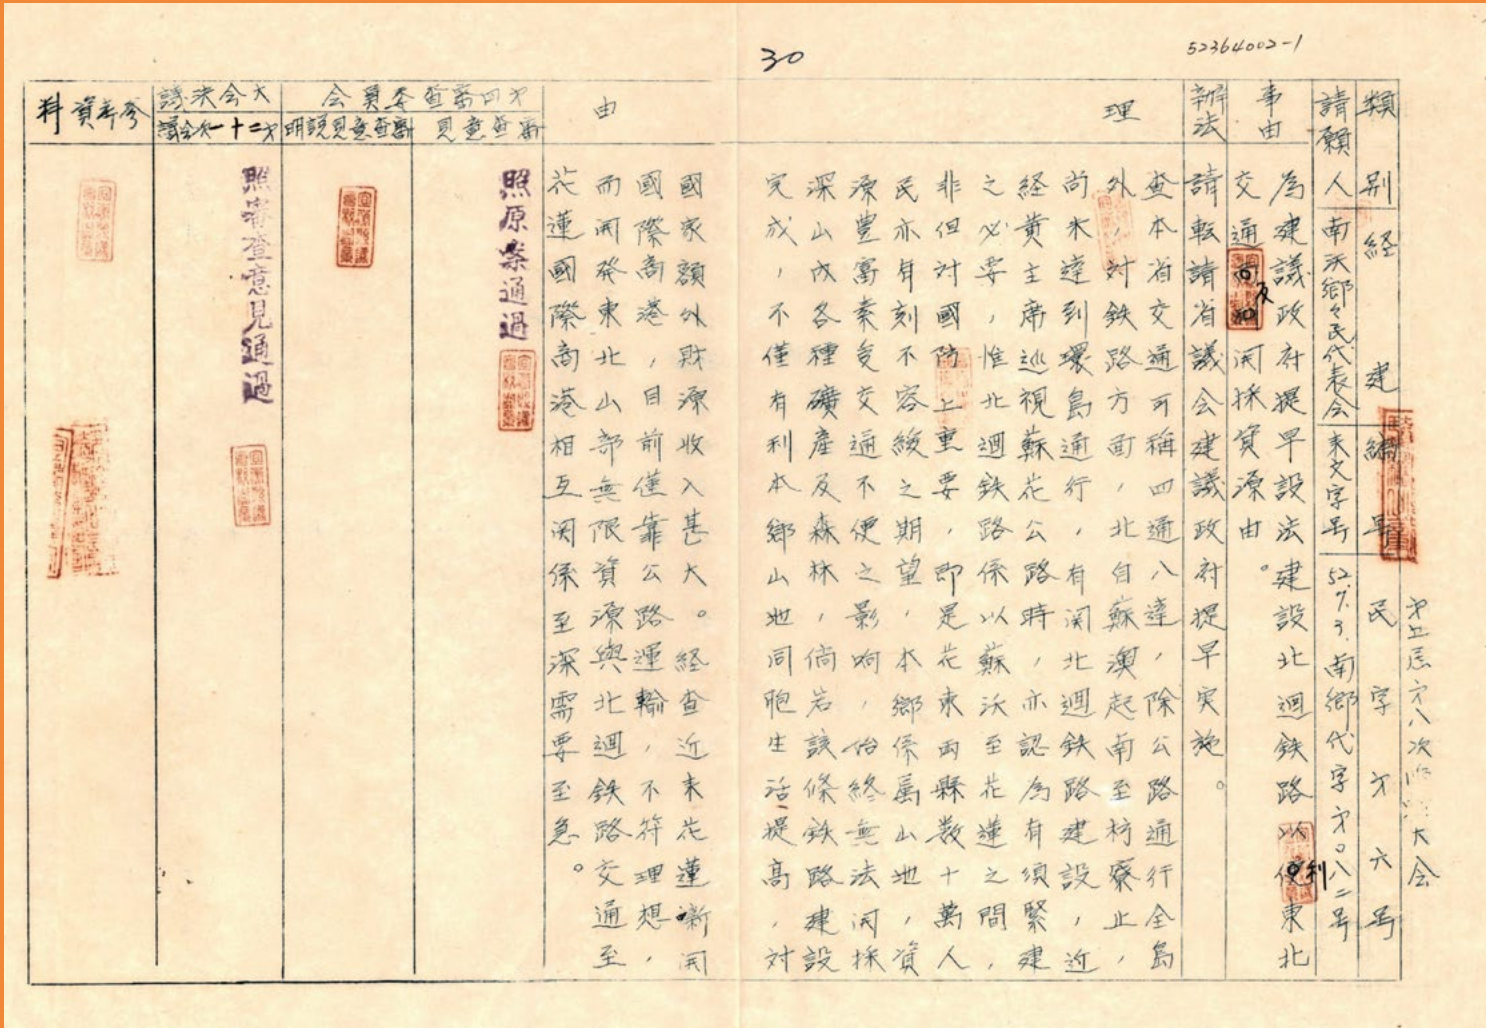 52364002-1
30
類別 経建
編号 民字㐧六号
請願人 南沃鄉々民代表会
来文字号 52.7.3.南鄉代字㐧0八二号
事由
為建議政府提早設法建設北迴鉄路以利東北
交通及開採資源由。
辦法
請転請省議会建議政府提早実施。
理
查本省交通可稱四通八達，除公路通行全島
外，対鉄路方面，北自蘇澳起南至枋寮止，
尚未達到環島通行，有関北迴鉄路建設，近
経黄主席巡視蘇花公路時，亦認為有須緊建
之必要，惟北迴鉄路係以蘇沃至花蓮之間，
非但対國防上重要，即是花東両縣数十萬人
民亦有刻不容緩之期望，本鄉係属山地，資
源豊富素受交通不便之影响，始終無法開採
深山內各種礦產及森林，倘若該條鉄路建設
完成，不僅有利本鄉山地同胞生活提高，対
由
國家額外財源收入甚大。経查近来花蓮新開
國際商港，目前僅靠公路運輸，不符理想，
而開発東北山部無限資源與北迴鉄路交通至
花蓮國際商港相互関係至深需要至急。
㐧四審查委員会
審查意見
照原案通過
審查意見説明
大会決議
㐧二十一次会議
照審查意見通過
参考資料